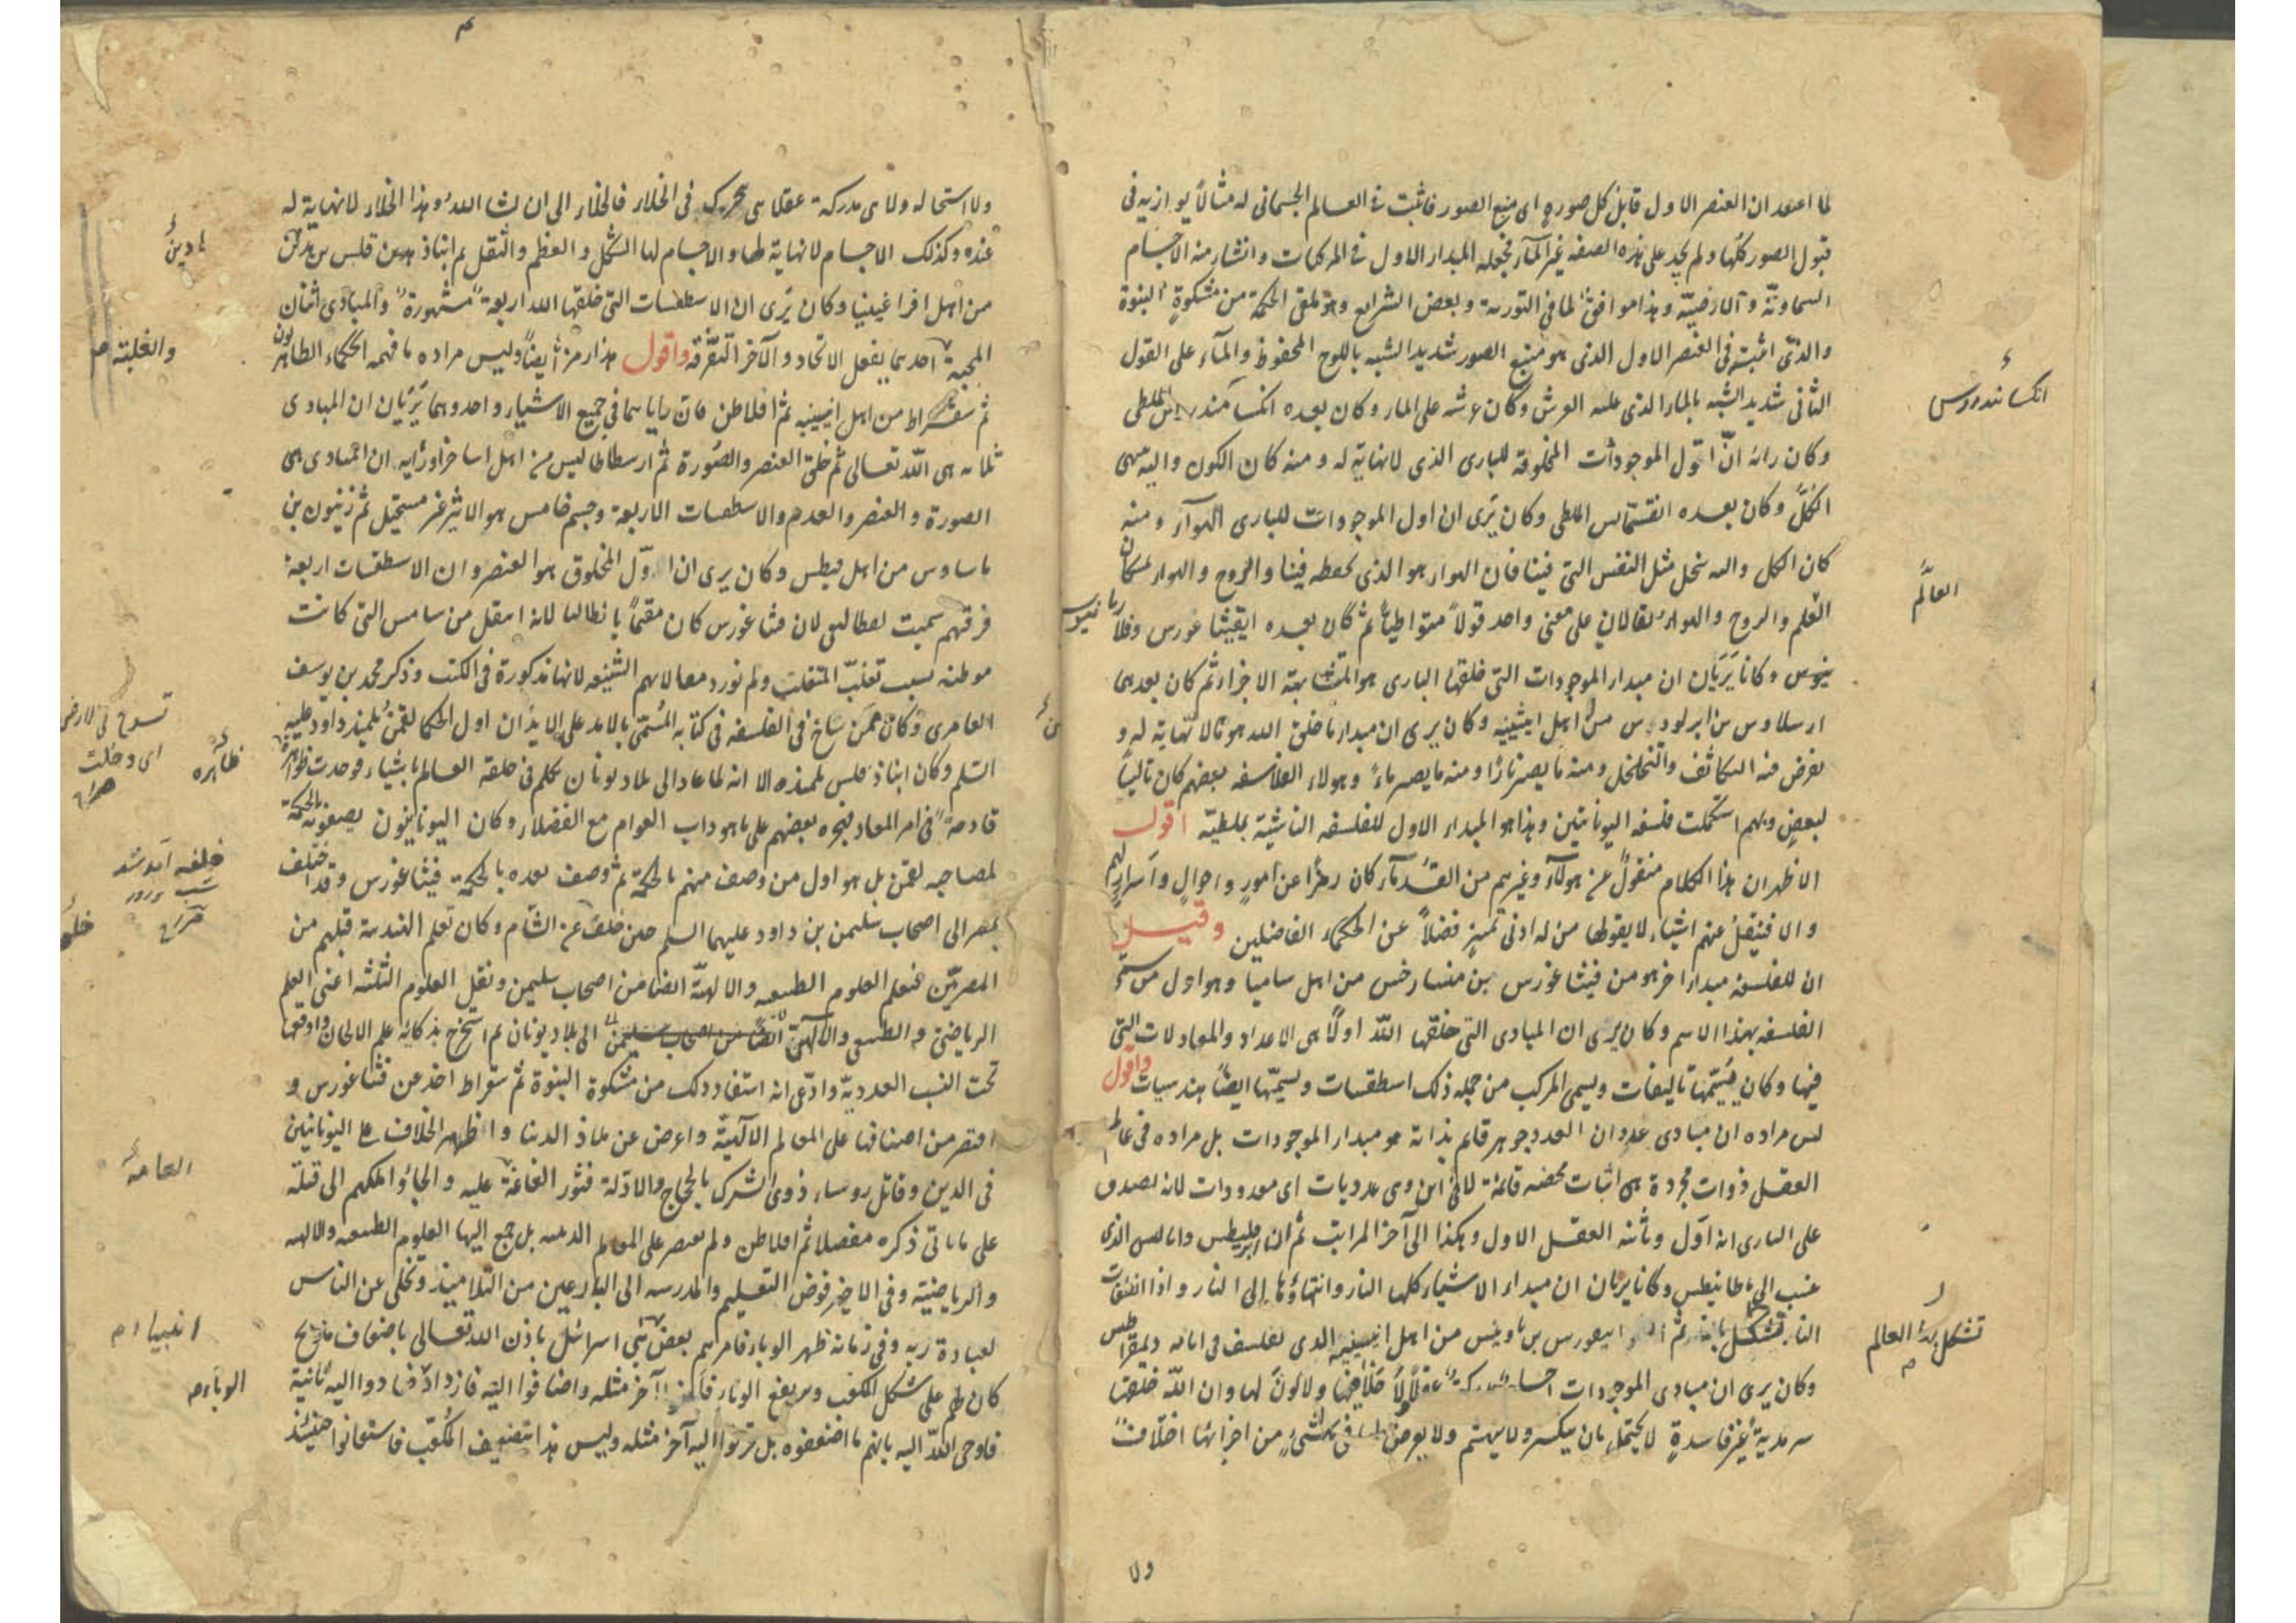 لما اعتقد ان العنصر الاول قابل كل صورة اى منبع الصور فاثبت فى العالم الجسمانى له مثالاً يوازيه فى
قبول الصور كلها ولم يجد على هذه الصفة غير المآء فجعله المبداء الاول فى المركبات وانشاء منه الاجسام
السماويّة والارضيّة وهذا موافق لما فى التورية وبعض الشرايع وهو ملقى الحكمة من مشكوة النبوة
والذى اثبته فى العنصر الاول الذى هو منبع الصور شديد الشبه باللوح المحفوظ والمآء على القول
الثانى شديد الشبه بالماء الذى عليه العرش وكان عرشه على الماء وكان بعده انكسامندر الملطى
انكساندروس
وكان رائه انّ اوّل الموجودات المخلوقة للبارى الذى لانهاية له ومنه كان الكون واليه ينتهى
الكلّ وكان بعده انقسمانس الملطى وكان يَرى ان اول الموجودات للبارى الهوآء ومنه
كان الكل واليه ينحل مثل النفس التى فينا فان الهواء هو الذى يحفظه فينا والروح والهواء يمسكان
العالَم
العلم والروح والهواء يقالان على معنى واحد قولاً متواطياً ثم كان بعده ايقيثاغورس وفلا
نيوس وكانا يَرَيَان ان مبداء الموجودات التى خلقها البارى هو المتشابهة الاجزاء ثم كان بعدهما
ارسلاوس بن ابولودرس من اهل اثينيه وكان يرى ان مبداء ما خلق الله هو مالا نهاية له و
يعرض فيه التكاثف والتخلخل ومنه ما يصير نارًا ومنه ما يصير ماءً وهولاء الفلاسفه بعضهم كان تاليًا
لبعضٍ وبهم استكملت فلسفه اليونانيين وهذا هو المبداء الاول للفلسفه الناشئية بملطيّه اقول
الاظهر ان هذا الكلام منقول عن هولآء وغيرهم من القدمآء كان رمزًا عن امورٍ واحوالٍ واسرارٍ لهم
والا فينقل عنهم اشياء لا يقولها من له ادنى تميزٍ فضلاً عن الحكماء الفاضلين وقيل
ان للفلسفه مبداءً اخر هو من فيثاغورس بن منسارخس من اهل ساميا وهو اول من سمّى
الفلسفه بهذا الاسم وكان يرى ان المبادى التى خلقها اللّه اولاً هى الاعداد والمعادلات التى
فيها وكان يسمّيها تاليفات ويسمى المركب من جمله ذلك اسطقسات ويسمّيها ايضًا هندسيات واقول
ليس مراده ان مبادى عددان العدد جوهر قايم بذاته هو مبداء الموجودات بل مراده فى عالم
العقل ذوات مجردة هى اثبات محضه قائمة لا فى اين وهى عدديات اى معدودات لانه يصدق
على البارى انه اوّل وثانيه العقل الاول وهكذا الى آخر المراتب ثم ان ابرقليطس وانالسى الذى
ينسب الى ماطانيطس وكانا يريان ان مبداء الاشياء كلها النار وانتهاؤها الى النار واذا انطفات
النار تشكل ثم ابيقورس بن ناوينس من اهل اثينيه الذى تفلسف فى ايام ديمقراطيس
تشكل بها العالم
وكان يرى ان مبادى الموجودات اجسام مدركة عقلاً لا خلاء فيها ولا لون لها وان اللّه خلقها
سرمدية غير فاسدةٍ لا يحتمل بان يكسر ولا يهشم ولا يعرض لها فى شئ من اجزائها اختلاف
ولا
ولا استحاله ولا هى مدركة عقلا هى تتحرك فى الخلاء فالخلاء الى ان شاء الله وهذا الخلاء لانهاية له
عنده وكذلك الاجسام لانهاية لها والاجسام لها الشكل والعظم والثقل ثم انباذ
من اهل افراغينيا وكان يَرى ان الاسطقسات التى خلقها اللّه اربعة مشهورة والمبادى اثنان
والغلبة
المحبة احدهما يفعل الاتحاد والآخر التفرّقة واقول هذا رمز ايضاً وليس مراده ما فهمه الحكماء الظاهريون
ثم سقراط من اهل اثينيه ثم افلاطن فان رايهما فى جميع الاشياء واحد وهما يَرَيَان ان المبادى
ثلاثه هى اللّه تعالى ثم خلق العنصر والصّورة ثم ارسطاطاليس من اهل اساخرا ورايه ان المبادى هى
الصورة والعنصر والعدم والاسطقسات الاربعة وجسم خامس هو الاثير غير مستحيل ثم زينون بن
ماساوس من اهل قيطس وكان يرى ان اوّل المخلوق هو العنصر وان الاسطقسات اربعة
فرقتهم سميت ايطاليى لان فيثاغورس كان مقيماً بانطاليا لانه انتقل من سامس التى كانت
موطنه بسبب تغلّب المتغلب ولم نورد مقالاتهم الشنيعه لانها مذكورة فى الكتب وذكر محمد بن يوسف
العامرى وكان ممن ساخ فى الفلسفه فى كتابه المسمّى بالامد على الابد ان اول الحكما لقمن تلميذ داود عليه
السّلم وكان انباذقلس تلميذه الا انه لما عاد الى بلاد يونان تكلم فى خلقة العالم باشياء فوجدت ظواهرها
قادحةً فى امر المعاد فهجره بعضهم على ما هو داب العوام مع الفضلاء وكان اليونانيون يصفونه بالحكمة
لمصاحبه لقمن بل هو اول من وصف منهم بالحكمة ثم وصف بعده بالحكمة فيثاغورس وقد اختلف
بمصر الى اصحاب سليمن بن داود عليهما السلم حين خلفَ عن الشام وكان تعلم الهندسة قبلهم من
المصريّين فتعلم العلوم الطبيعيه والالهيّة ايضا من اصحاب سليمن ونقل العلوم الثلثه اعنى العلم
الرياضى والطبيعى والالهىّ الى بلاد يونان ثم استخرج بذكائه علم الالحان واوقعها
تحت النسب العدديّه وادّعى انه استفاد ذلك من مشكوة النبوة ثم سقراط اخذ عن فيثاغورس و
اقتصر من اصنافها على المعالم الآلهيّة واعرض عن ملاذ الدنيا واظهر الخلاف على اليونانيين
العامة
فى الدين وقاتل روساء ذوى الشرك بالحجاج والادّلة فثور الغاغة عليه والجاؤا ملكهم الى قتله
على ما ياتى ذكره مفصلا ثم افلاطن ولم يقتصر على المعالم الدينيه بل جمع اليها العلوم الطبيعيه والالهيه
والرياضيّة وفى الاخير فوّض التعليم والمدرسه الى البارعين من التلاميذ وتخلى عن الناس
لعبادة ربه وفى زمانه ظهر الوباء فامرهم بعض بنى اسرائل باذن اللّه تعالى باضعاف مذبح
انبياء م
كان لهم على شكل المكعب وسيرفع الوباء آخر مثله واضافوا اليه فازداد فعادوا اليه ثانية
الوباء
فاوحى اللّه اليه بانهم ما اضعفوه بل قرنوا اليه آخر مثله وليس هذا بتضعيف المكعب فاستعانوا حينئذ